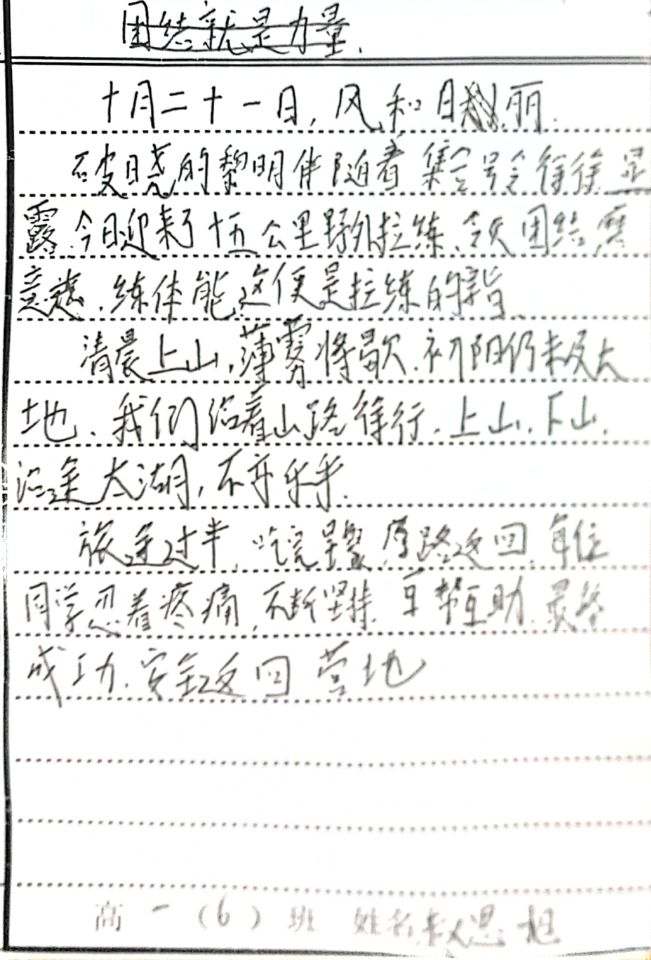 团结就是力量.
十月二十一日,风和日丽.
破晓的黎明伴随着集合号令徐徐显
露.今日迎来了十五公里野外拉练.令人团结磨
意志.练体能.这便是拉练的旨.
清晨上山,薄雾将歇.初阳仍未及大
地.我们沿着山路徐行.上山.下山.
沿途太湖,不亦乐乎.
旅途过半.吃完早餐.原路返回.每位
同学忍着疼痛.不断坚持.互帮互助.最终
成功.安全返回营地
高一(6)班 姓名 思